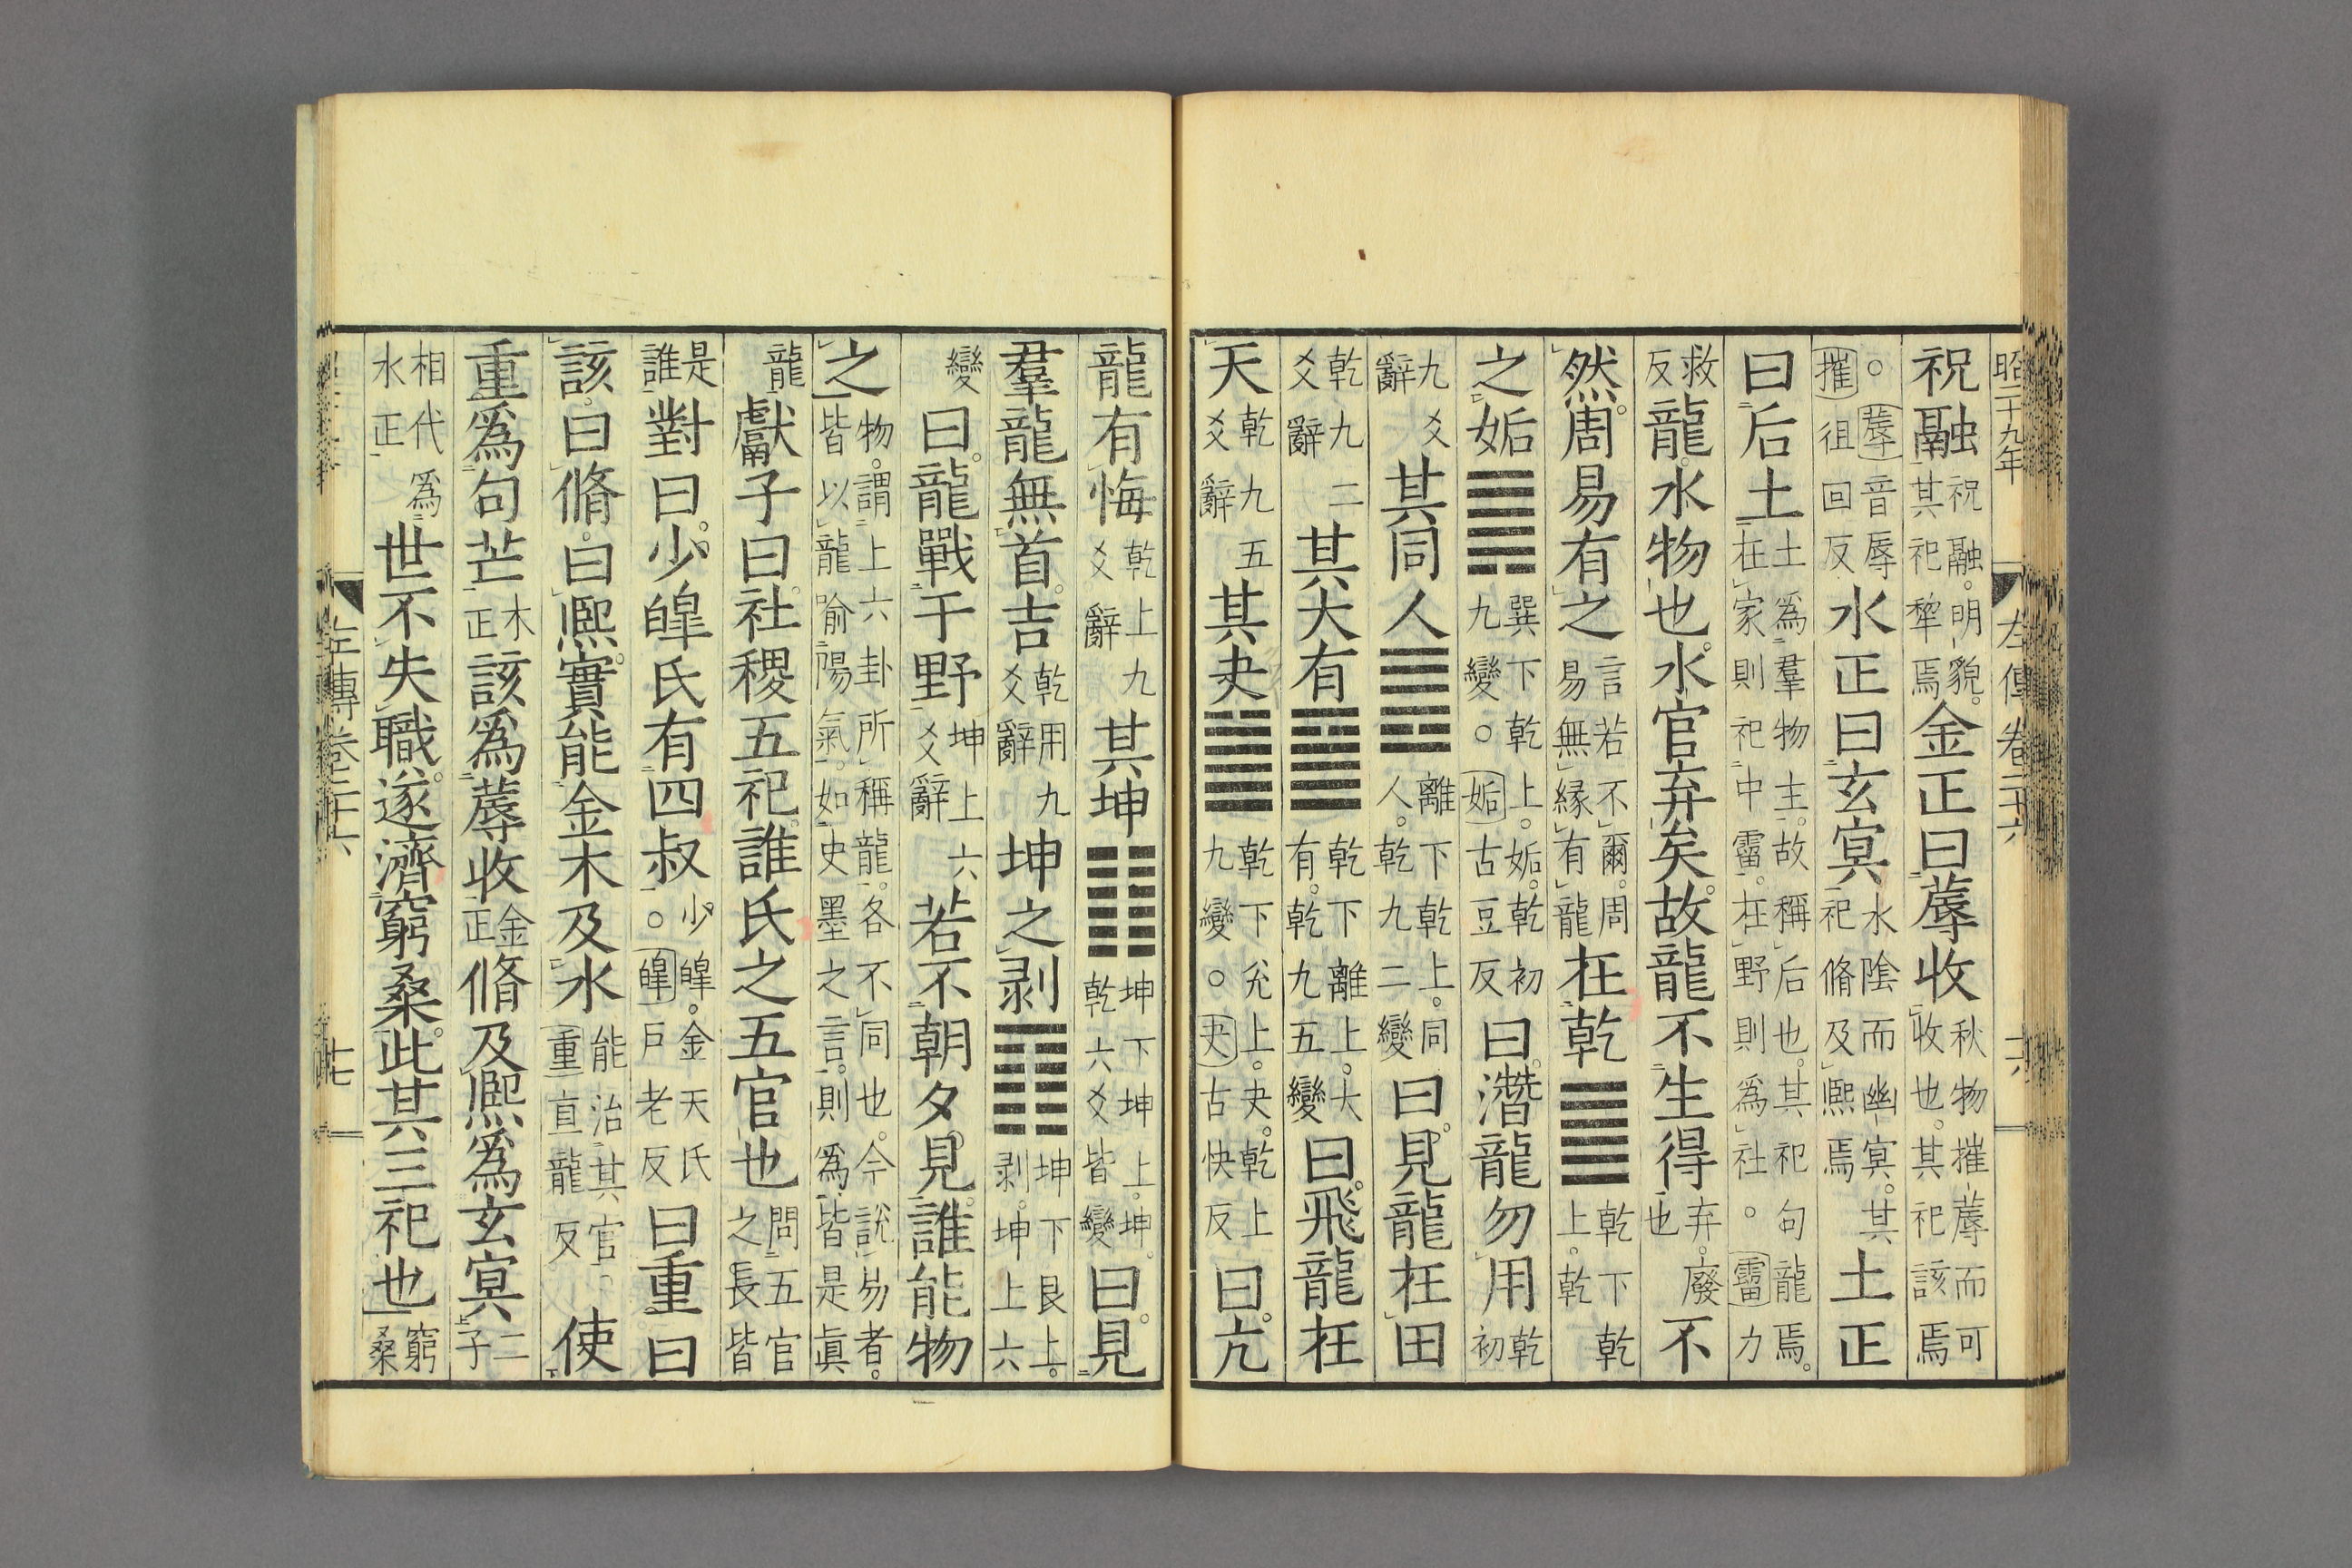 昭二十九年 左傳卷二十六
祝融祝融明貌其祀犂焉金正曰蓐收秋物摧蓐而可收也其祀該焉
○蓐音辱摧徂回反水正曰玄冥水陰而幽冥其祀脩及熙焉土正
曰后土土爲羣物主故稱后也其祀句龍焉在家則祀中霤在野則爲社○霤力
救反龍水物也水官弃矣故龍不生得弃廢也不
然周易有之言若不爾周易無緣有龍在乾䷀乾下乾上乾
之姤䷫巽下乾上姤乾初九變○姤古豆反曰潛龍勿用乾初
九爻辭其同人䷌離下乾上同人乾九二變曰見龍在田
乾九二爻辭其大有䷍乾下離上大有乾九五變曰飛龍在
天乾九五爻辭其夬䷪乾下兊上夬乾上九變○夬古快反曰亢
龍有悔乾上九爻辭其坤䷁坤下坤上坤乾六爻皆變曰見
羣龍無首吉乾用九爻辭坤之剥䷖坤下艮上剥坤上六
變曰龍戰于野坤上六爻辭若不朝夕見誰能物
之物謂上六卦所稱龍各不同也今說易者皆以龍喻陽氣如史墨之言則爲皆是眞
龍獻子曰社稷五祀誰氏之五官也問五官之長皆
是誰對曰少皥氏有四叔少皥金天氏○皥戶老反曰重曰
該曰脩曰熙實能金木及水能治其官重直龍反使
重爲句芒木正該爲蓐收金正脩及熙爲玄冥二子
相代爲水正世不失職遂濟窮桑此其三祀也窮桑
左傳卷二十六 十七